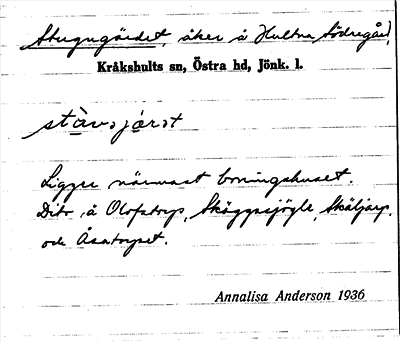 Stugugärdet, åker å Hultna Södregård,
Kråkshults sn, Östra hd, Jönk. l.
Ligger närmast boningshuset.
Dito å Olofstorp, Skäggssjögle, Skäljarp,
och Åsatorpet.
Annalisa Anderson 1936